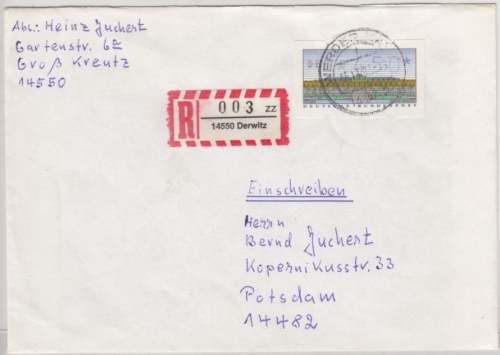 Abs.: Heinz Juchert
Gartenstr. 6a
Groß Kreutz
14550
WERDER
DEUTSCHE BUNDESPOST
R
003 zz
14550 Derwitz
Einschreiben
Herrn
Bernd Juchert
Kopernikusstr. 33
Potsdam
14482